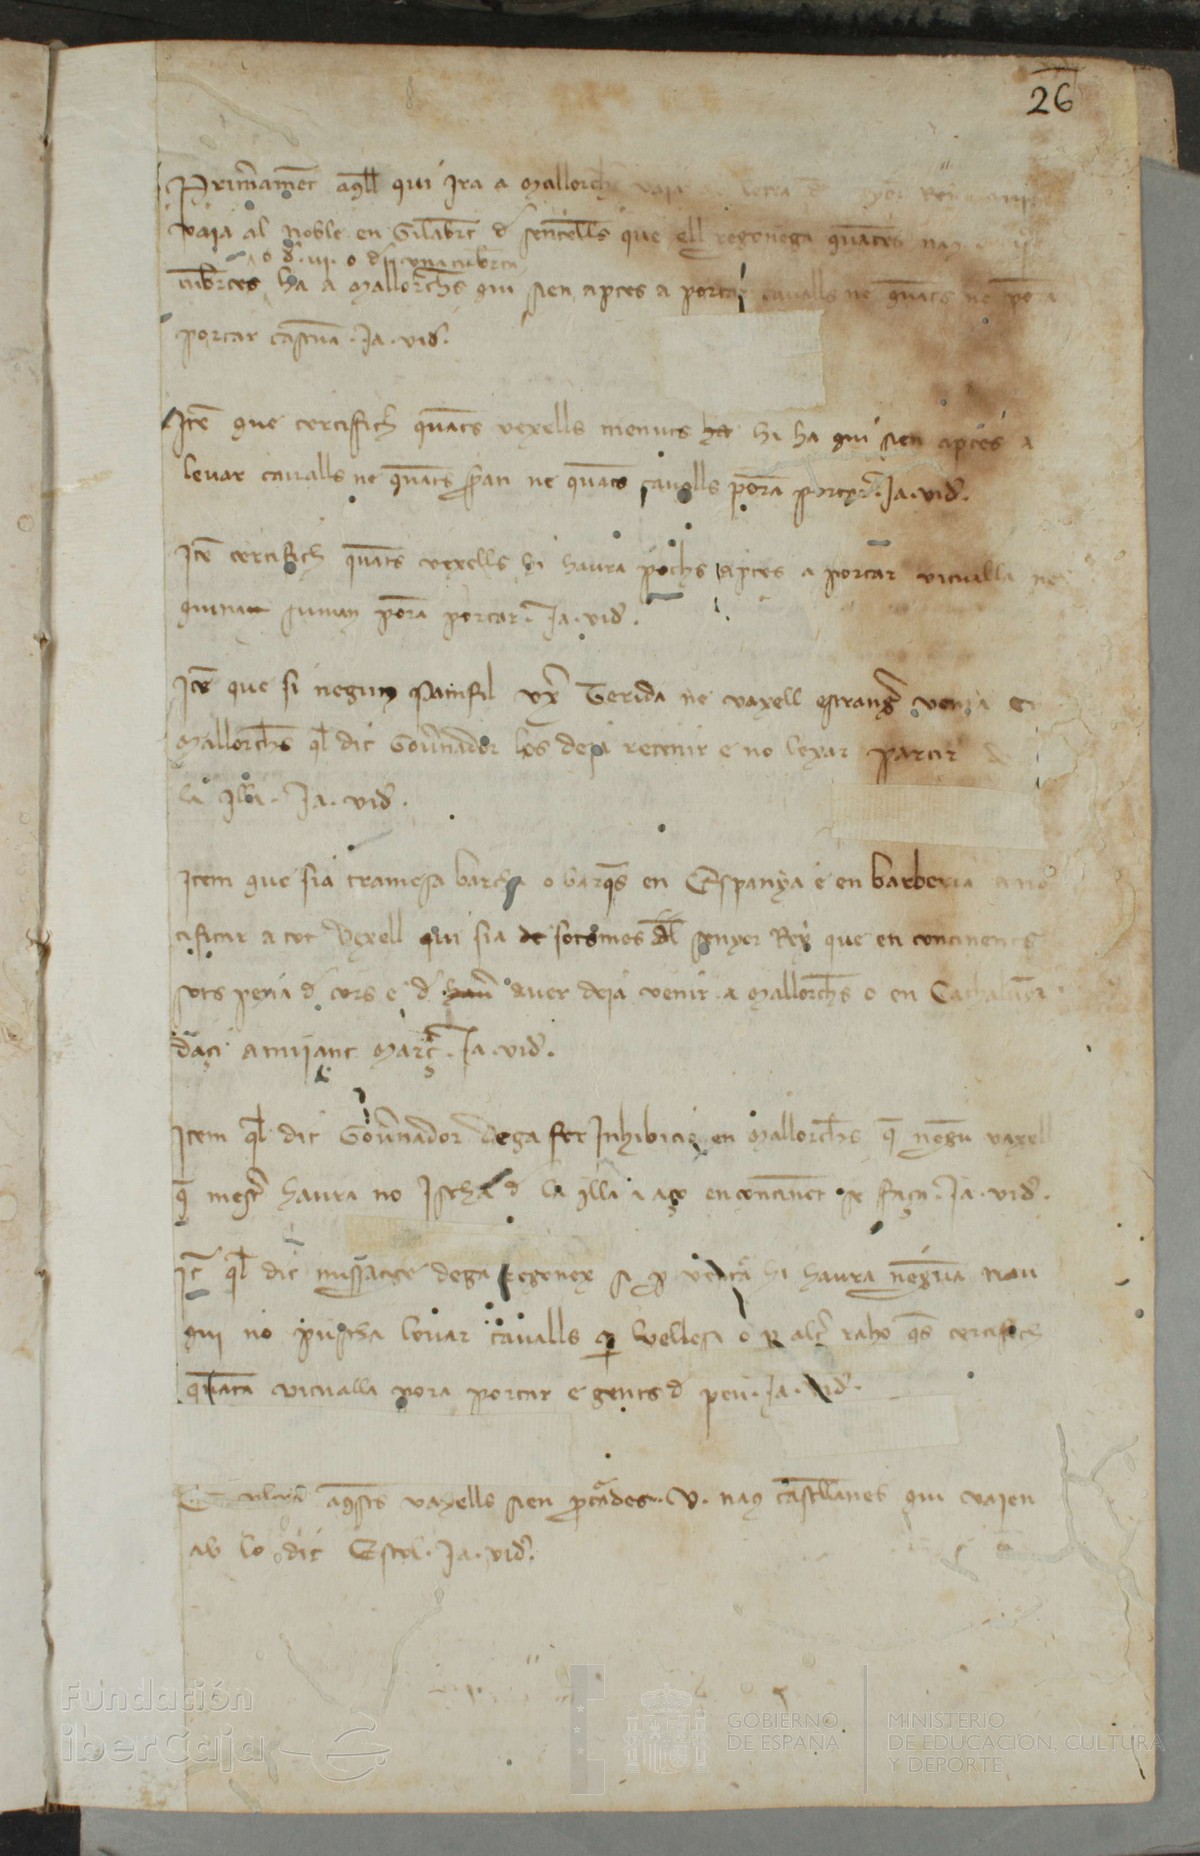 26
Primerament aquell qui ira a Mallorch
vaia al noble en Gilabert de sentelles que ell regonega quantes naus
o de .III. o de .II. cubertes
cubertes ha a Mallorches qui sien aptes a portar cavalls ne quants ne pora
portar cascuna . Ja . vid.
Item que certifich quants vexells menuts hi ha qui sien aptes a
levar cavalls ne quants seran ne quants cavalls poran portar . Ja . vid.
Item certifich quants vexells hi haura pochs aptes a portar vitualla ne
quina suman pora portar . Ja . vid.
Item que si negun Pamfil uxer Terida ne vaxell estranger venia
Mallorches quel dit Governador los deia retenir e no lexar partir de
la illa . Ja . vid.
Item que sia tramesa barcha o barques en Espanya e en barberia a no
tificar a tot vexell qui sia de sotsmes del senyor Rey que en continent
sots pena de cors e de aver deia venir a Mallorches o en Cathalunya
daçi a mijant Març . Ja . vid.
Item quel dit Governador dega fer Inhibicio en Mallorches que negun vaxell
que mester haura no Ischa de la illa i aço encontinent se faça . Ja . vid.
Item quel dit missatge dega regonex si per ventura hi haura neguna nau
qui no puscha levar cavalls per vellesa o per altre raho que certifich
quanta vitualla pora portar e gents de peu . Ja . vid.
aquests vaxells sien . V . naus castellanes qui vaien
ab lo dit Estol . Ja . vid.
Fundación
iberCaja
GOBIERNO
DE ESPAÑA
MINISTERIO
DE EDUCACIÓN, CULTURA
Y DEPORTE